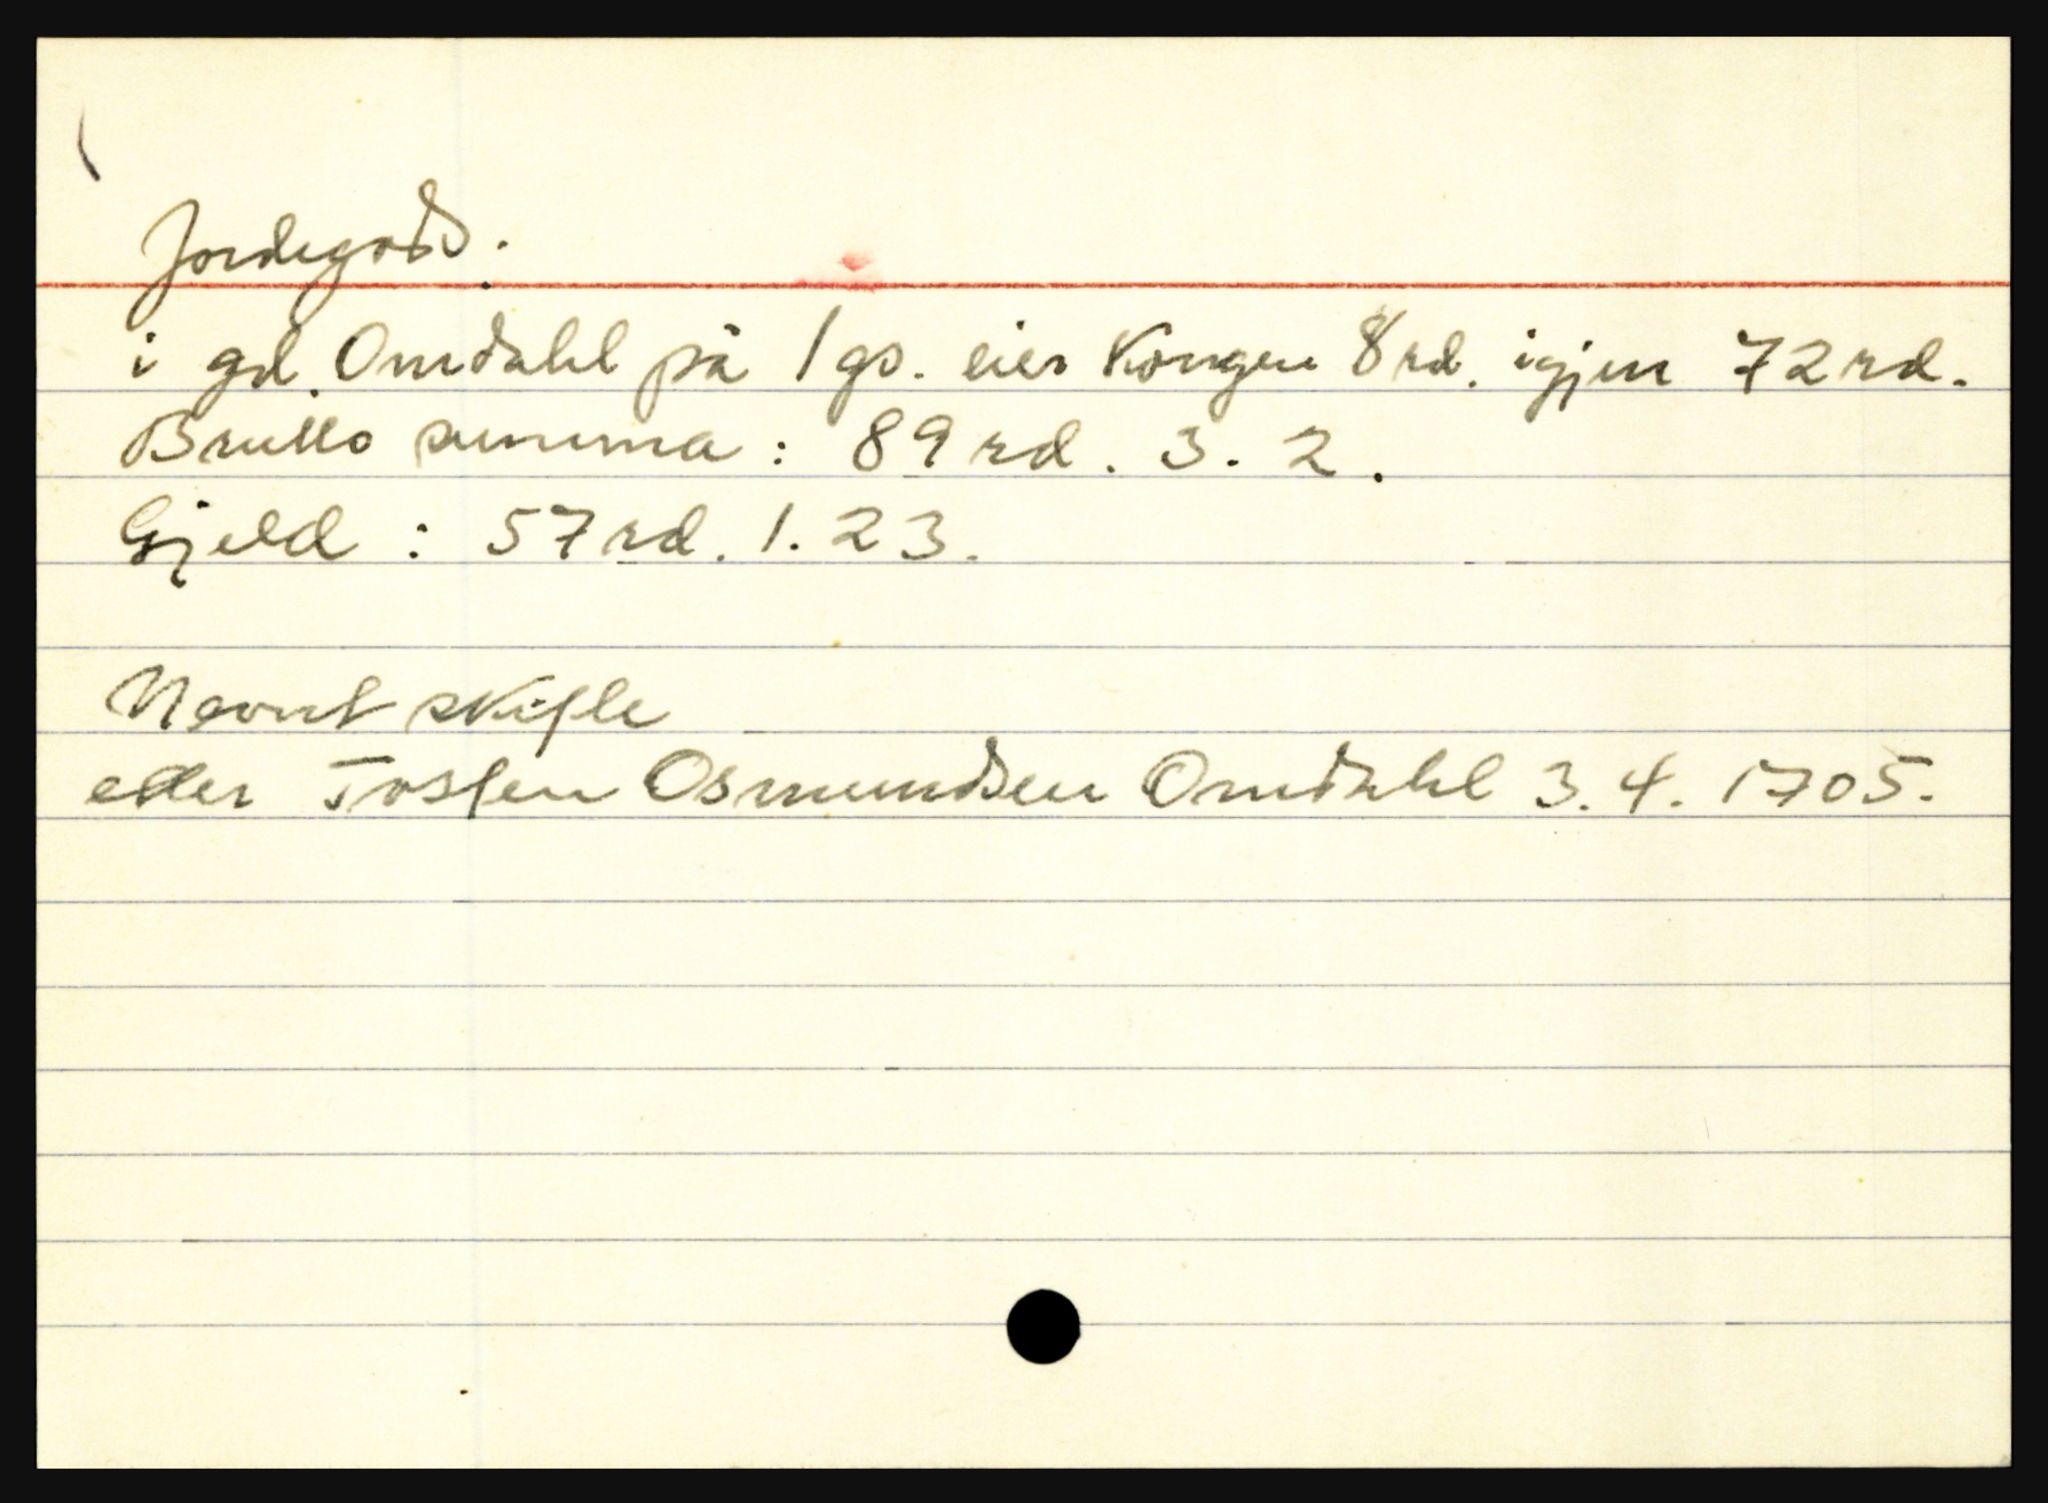 Jordegods.
i gd. Omdahl på 1 gs. eier Kongen 8 rd. igjen 72 rd.
Brutto summa : 89 rd. 3. 2.
Gjeld : 57 rd. 1. 23.
Nevnt skifte
etter Tosten Osmundsen Omdahl 3. 4. 1705.